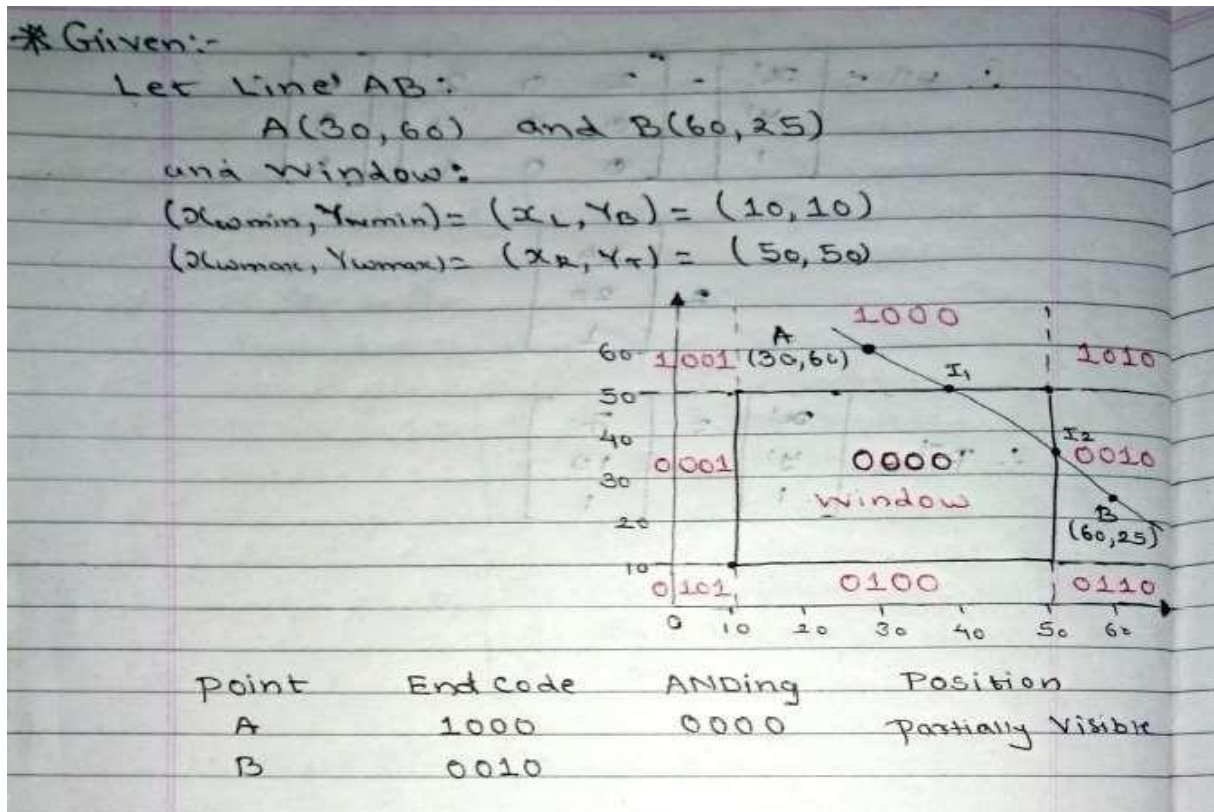 * Given:-
Let Line' AB:
A(30,60) and B(60,25)
and window:
(xwmin, Ywmin) = (xL, YB) = (10,10)
(xwmax, Ywmax) = (xR, YT) = (50,50)
1000
A
60 1001 (30,60) 1010
I1
50
40 I2
0001 0000 0010
30 window
20 B
(60,25)
10
0101 0100 0110
0 10 20 30 40 50 60
Point End Code ANDing Position
A 1000 0000 Partially Visible
B 0010